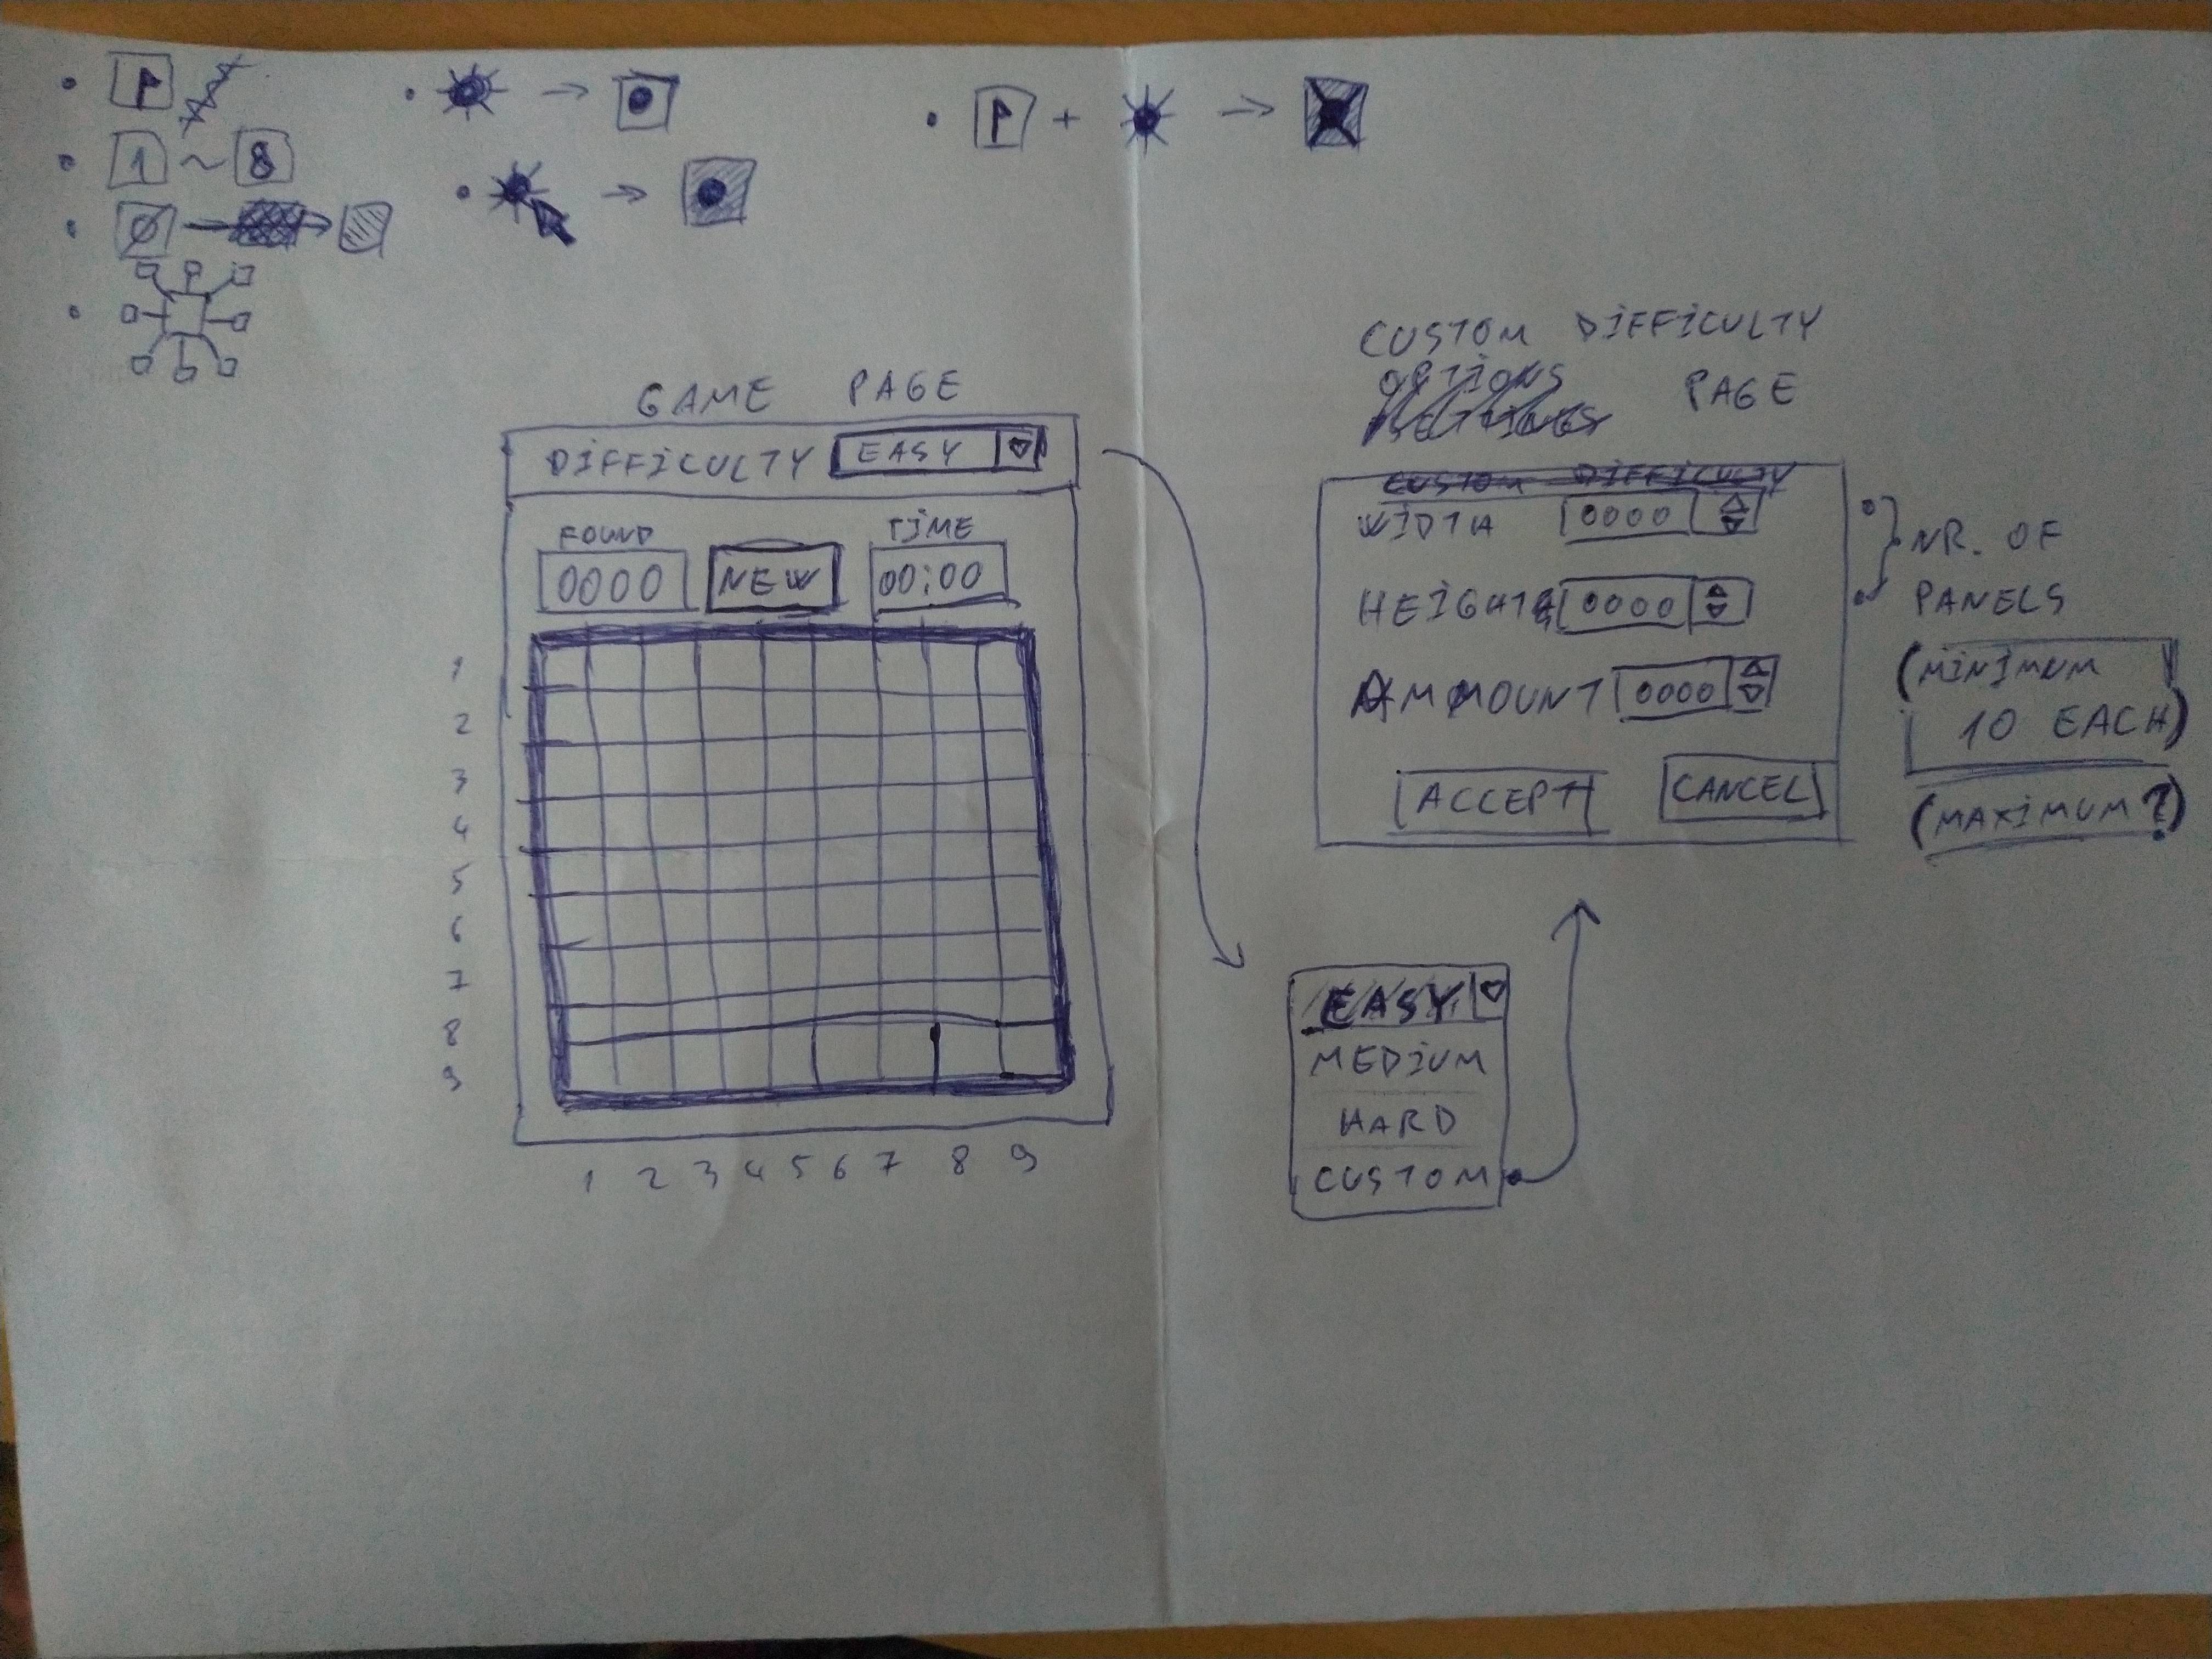 1 ~ 8
0
GAME PAGE
DIFFICULTY EASY
FOUND TIME
0000 NEW 00:00
1
2
3
4
5
6
7
8
9
1 2 3 4 5 6 7 8 9
CUSTOM DIFFICULTY
OPTIONS PAGE
SETTINGS
CUSTOM DIFFICULTY
WIDTH 0000
HEIGHT 0000
AMMOUNT 0000
ACCEPT CANCEL
NR. OF
PANELS
(MINIMUM
10 EACH)
(MAXIMUM?)
EASY
MEDIUM
HARD
CUSTOM